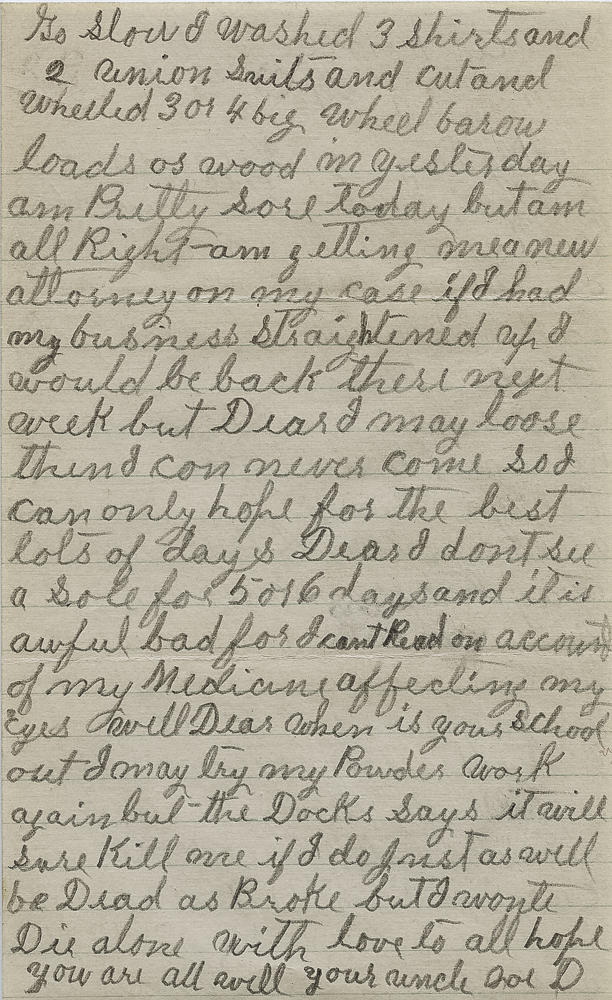 Go slow I washed 3 shirts and
2 union suits and cut and
wheeled 3 or 4 big wheel barow
loads os wood in yesterday
am Pretty sore today but am
all Right am getting me a new
attorney on my case if I had
my business straightened up I
would be back there next
week but Dear I may loose
then I con never come so I
can only hope for the best
lots of days Dear I dont see
a sole for 5 or 6 days and it is
awful bad for I cant Read on account
of my Medicine affecting my
Eyes well Dear when is your school
out I may try my Powder work
again but the Docks says it will
sure Kill me if I do Just as well
be Dead as Broke but I wont
Die alone with love to all hope
you are all well your uncle Joe D